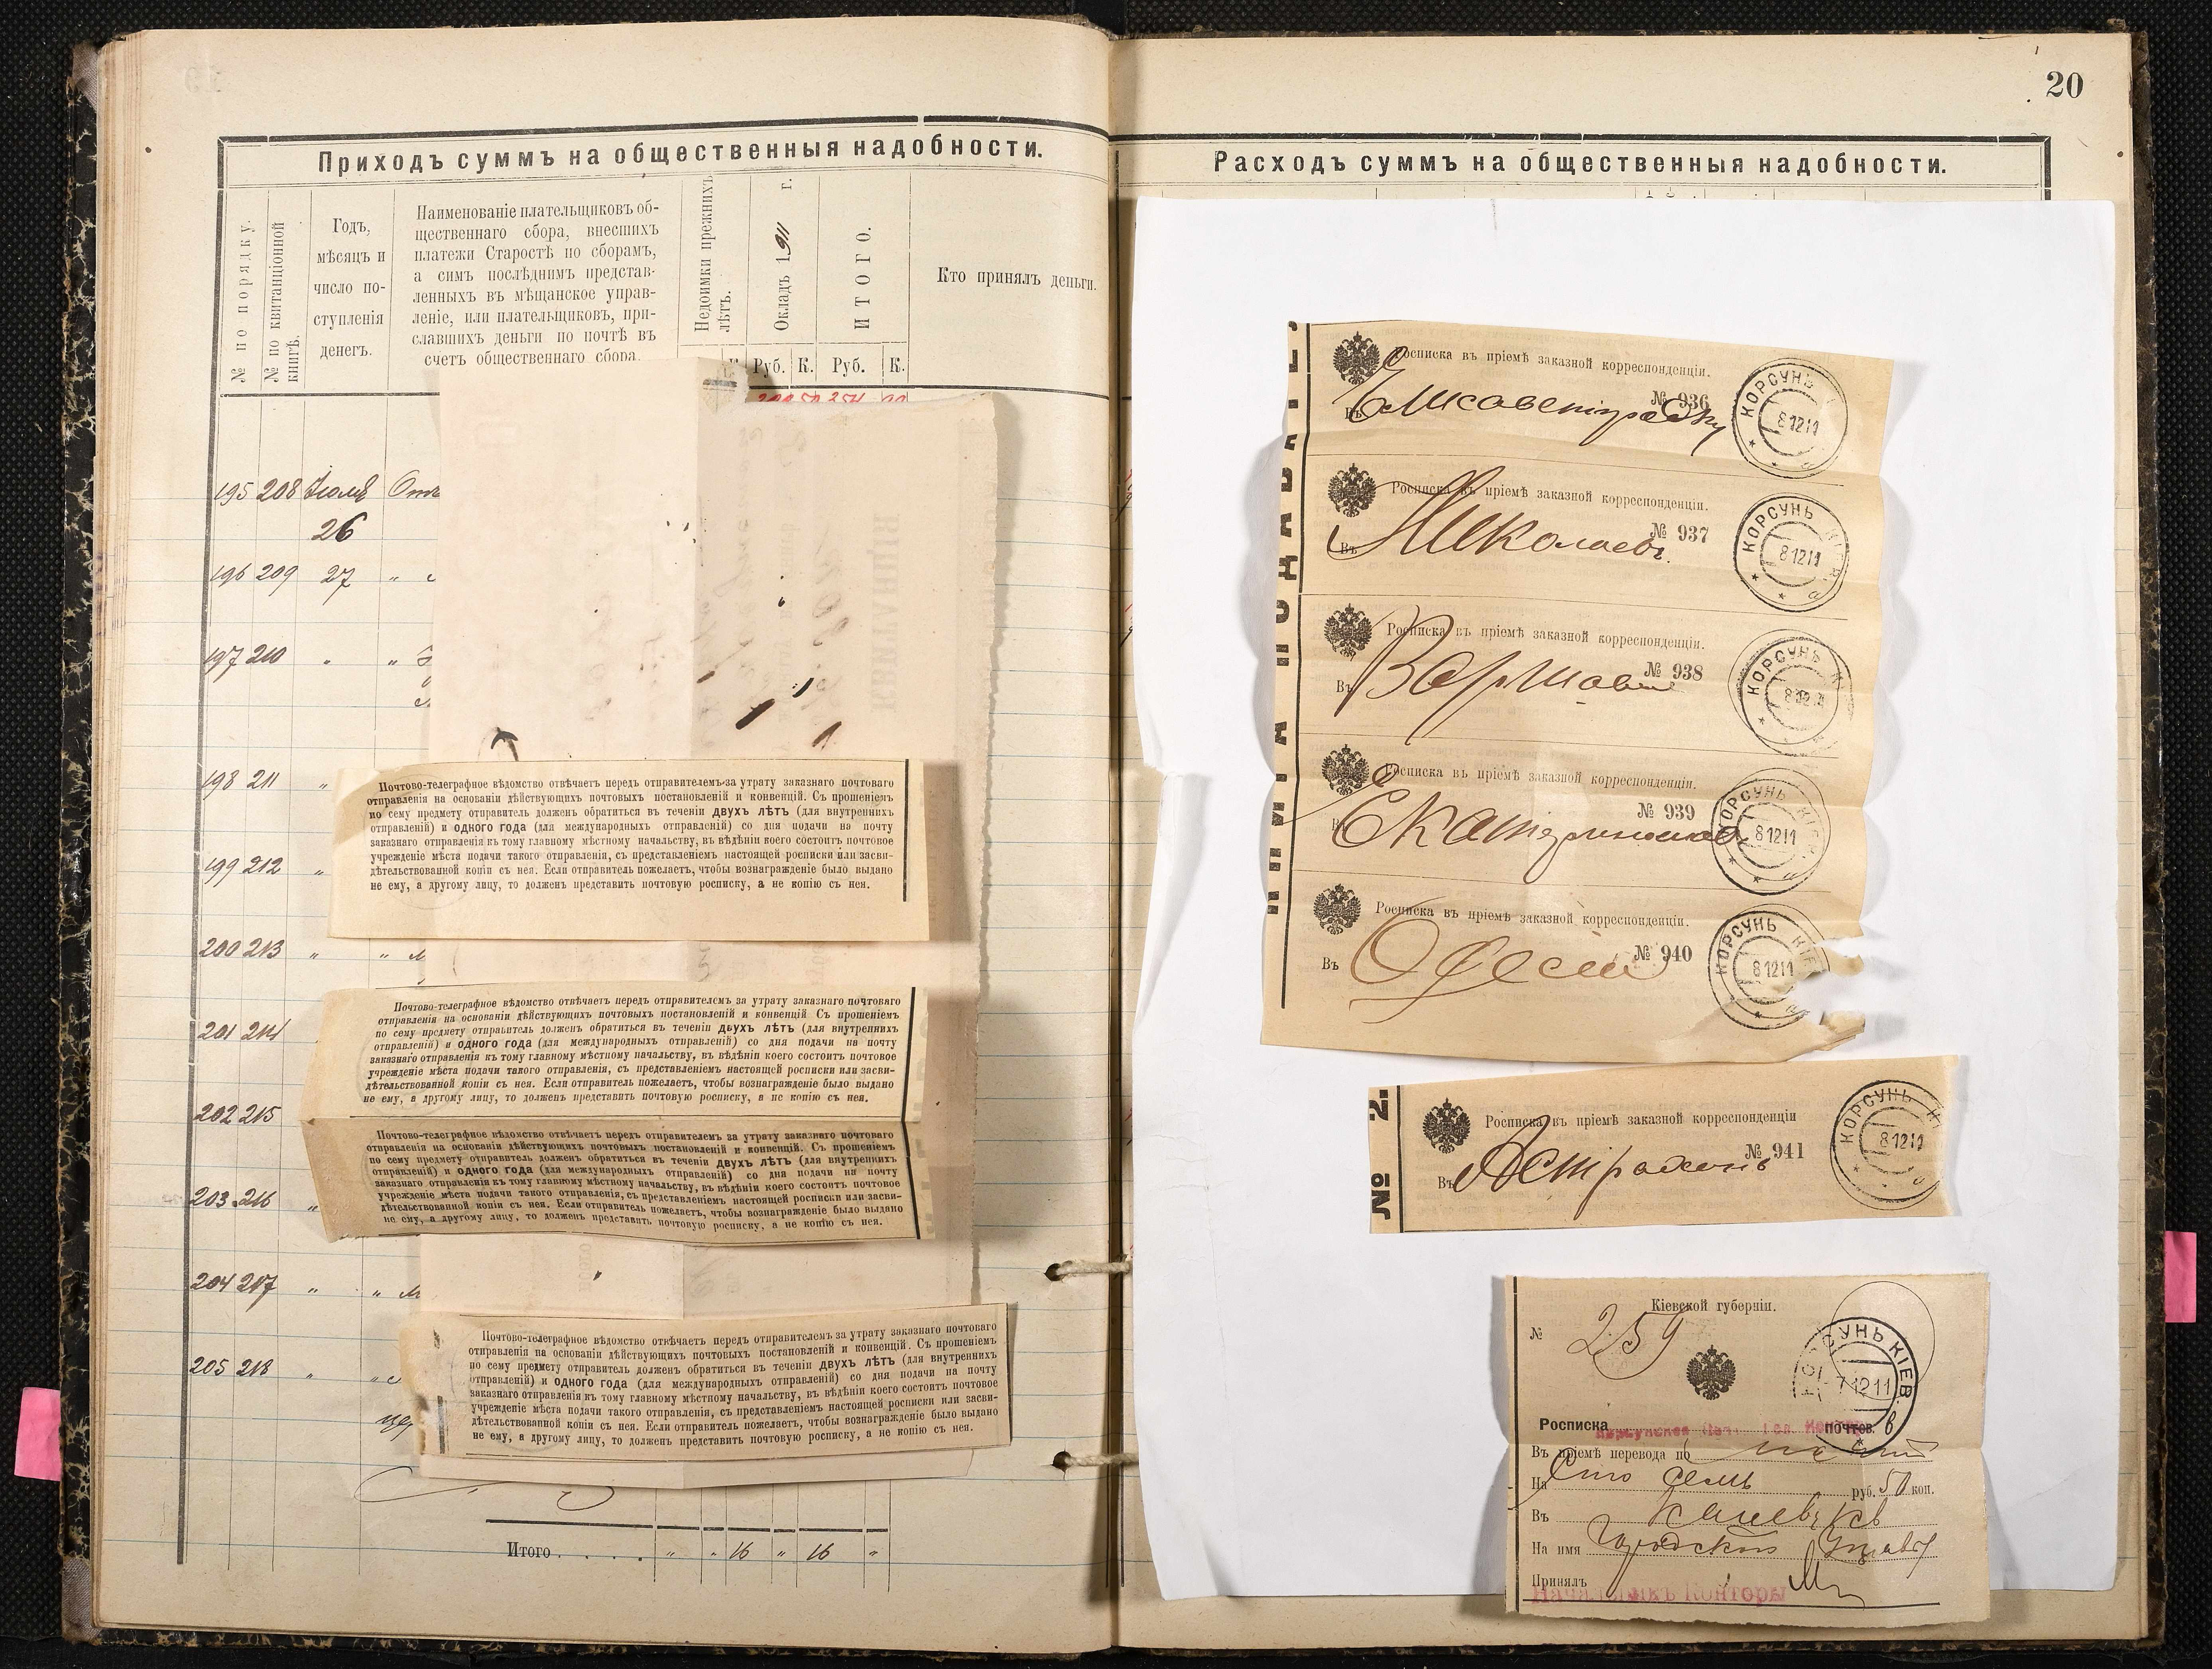 Приходъ суммъ на общественныя надобности.
№ по порядку.
№ по квитанціонной книгѣ.
Годъ,
мѣсяцъ и
число по-
ступленія
денегъ.
Наименованіе плательщиковъ об-
щественнаго сбора, внесшихъ
платежи Старостѣ по сборамъ,
а симъ послѣднимъ представ-
ленныхъ въ мѣщанское управ-
леніе, или плательщиковъ, при-
славшихъ деньги по почтѣ въ
счетъ общественнаго сбора.
Недоимки прежнихъ лѣтъ.
Окладъ 1911 г.
ИТОГО.
Кто принялъ деньги.
Руб. К. Руб. К.
195 208 Іюля
26
196 209 27 "
197 210 " "
198 211 "
199 212 "
200 213 " "
201 214
202 215
203 216 "
204 217 " "
205 218 " "
Почтово-телеграфное вѣдомство отвѣчаетъ передъ отправителемъ за утрату заказнаго почтоваго
отправленія на основаніи дѣйствующихъ почтовыхъ постановленій и конвенцій. Съ прошеніемъ
по сему предмету отправитель долженъ обратиться въ теченіи двухъ лѣтъ (для внутреннихъ
отправленій) и одного года (для международныхъ отправленій) со дня подачи на почту
заказнаго отправленія къ тому главному мѣстному начальству, въ вѣдѣніи коего состоитъ почтовое
учрежденіе мѣста подачи такого отправленія, съ представленіемъ настоящей росписки или засви-
дѣтельствованной копіи съ нея. Если отправитель пожелаетъ, чтобы вознагражденіе было выдано
не ему, а другому лицу, то долженъ представить почтовую росписку, а не копію съ нея.
Почтово-телеграфное вѣдомство отвѣчаетъ передъ отправителемъ за утрату заказнаго почтоваго
отправленія на основаніи дѣйствующихъ почтовыхъ постановленій и конвенцій. Съ прошеніемъ
по сему предмету отправитель долженъ обратиться въ теченіи двухъ лѣтъ (для внутреннихъ
отправленій) и одного года (для международныхъ отправленій) со дня подачи на почту
заказнаго отправленія къ тому главному мѣстному начальству, въ вѣдѣніи коего состоитъ почтовое
учрежденіе мѣста подачи такого отправленія, съ представленіемъ настоящей росписки или засви-
дѣтельствованной копіи съ нея. Если отправитель пожелаетъ, чтобы вознагражденіе было выдано
не ему, а другому лицу, то долженъ представить почтовую росписку, а не копію съ нея.
Почтово-телеграфное вѣдомство отвѣчаетъ передъ отправителемъ за утрату заказнаго почтоваго
отправленія на основаніи дѣйствующихъ почтовыхъ постановленій и конвенцій. Съ прошеніемъ
по сему предмету отправитель долженъ обратиться въ теченіи двухъ лѣтъ (для внутреннихъ
отправленій) и одного года (для международныхъ отправленій) со дня подачи на почту
заказнаго отправленія къ тому главному мѣстному начальству, въ вѣдѣніи коего состоитъ почтовое
учрежденіе мѣста подачи такого отправленія, съ представленіемъ настоящей росписки или засви-
дѣтельствованной копіи съ нея. Если отправитель пожелаетъ, чтобы вознагражденіе было выдано
не ему, а другому лицу, то долженъ представить почтовую росписку, а не копію съ нея.
Почтово-телеграфное вѣдомство отвѣчаетъ передъ отправителемъ за утрату заказнаго почтоваго
отправленія на основаніи дѣйствующихъ почтовыхъ постановленій и конвенцій. Съ прошеніемъ
по сему предмету отправитель долженъ обратиться въ теченіи двухъ лѣтъ (для внутреннихъ
отправленій) и одного года (для международныхъ отправленій) со дня подачи на почту
заказнаго отправленія къ тому главному мѣстному начальству, въ вѣдѣніи коего состоитъ почтовое
учрежденіе мѣста подачи такого отправленія, съ представленіемъ настоящей росписки или засви-
дѣтельствованной копіи съ нея. Если отправитель пожелаетъ, чтобы вознагражденіе было выдано
не ему, а другому лицу, то долженъ представить почтовую росписку, а не копію съ нея.
Итого . . . . . " " 16 " 16 "
20
Расходъ суммъ на общественныя надобности.
Росписка въ пріемѣ заказной корреспонденціи.
№ 936
Въ Елисаветградку
КОРСУНЬ
81211
Росписка въ пріемѣ заказной корреспонденціи.
№ 937
Въ Николаевъ
КОРСУНЬ КІЕВ.
81211
Росписка въ пріемѣ заказной корреспонденціи.
№ 938
Въ Варшаве
КОРСУНЬ К
Росписка въ пріемѣ заказной корреспонденціи.
№ 939
Екатеринослав
КОРСУНЬ КІЕВ.
81211
Росписка въ пріемѣ заказной корреспонденціи.
№ 940
Въ Одессы
КОРСУНЬ КІЕВ
81211
№ 2.
Росписка въ пріемѣ заказной корреспонденціи
№ 941
Въ Астрахань
КОРСУНЬ К
81211
Кіевской губерніи.
№ 259
КОРСУНЬ КІЕВ.
71211
в
Росписка почтов.
Въ пріемѣ перевода по почтѣ
На Сто семь руб. 50 коп.
Въ Каневъ Кіев
На имя Городской Управы
Принялъ
Начальникъ Конторы